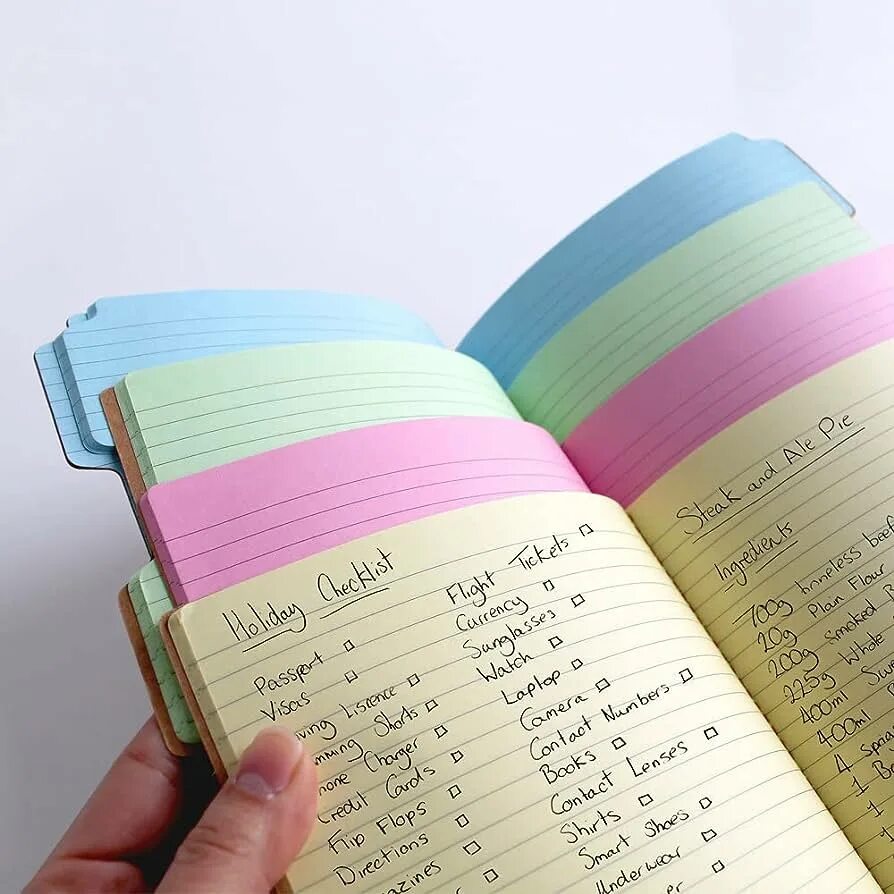 Holiday Checklist
Passport
Visas
ving Liscence
mming Shorts
hone Charger
Credit Cards
Flip Flops
Directions
azines
Flight Tickets
Currency
Sunglasses
Watch
Laptop
Camera
Contact Numbers
Books
Contact Lenses
Shirts
Smart Shoes
Underwear
Steak and Ale Pie
Ingredients
700g boneless beef
20g Plain Flour
200g Smoked B
225g Whole
400ml
400ml
4 Sprig
1 B
1